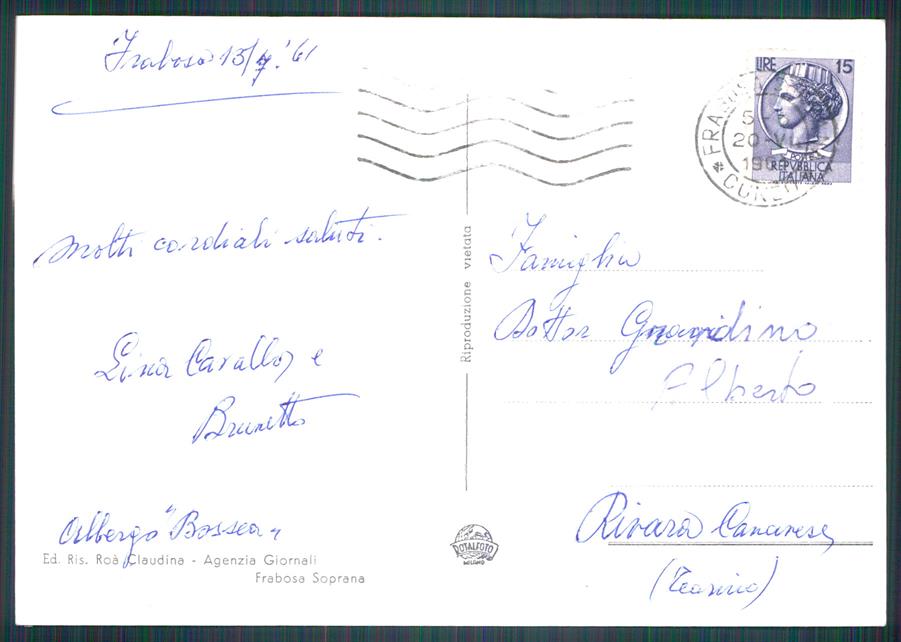 Frabosa 13/7/'61
LIRE 15
REPVBBLICA
ITALIANA
FRABOSA
20-VII
CUNEO
Molti cordiali saluti.
Lina Cavallo, e
Brunetto
Albergo "Bossea"
Ed. Ris. Roà Claudina - Agenzia Giornali
Frabosa Soprana
Riproduzione vietata
ROTALFOTO
MILANO
Famiglia
Dottor
Alberto
Rivara Canavese
(Torino)